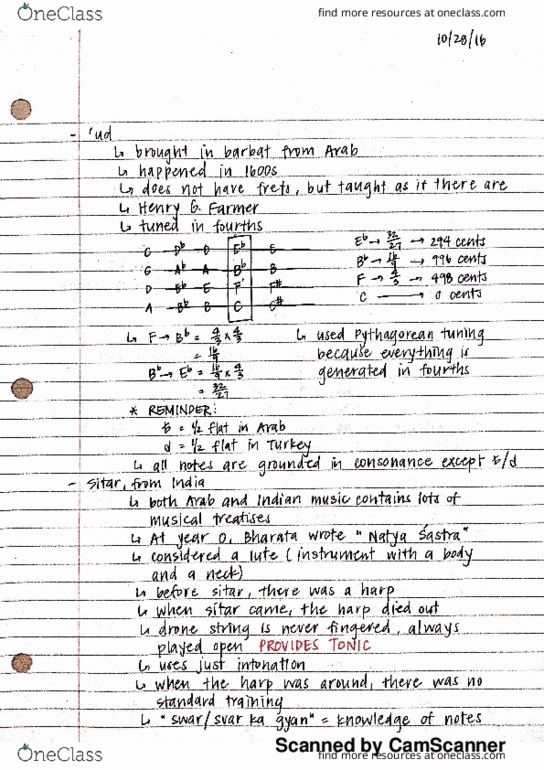 OneClass
find more resources at oneclass.com
10/28/16
- 'ud
↳ brought in barbat from Arab
↳ happened in 1600s
↳ does not have frets, but taught as if there are
↳ Henry G. Farmer
↳ tuned in fourths
C Db D Eb E
G Ab A Bb B
D Eb E F F#
A Bb B C C#
Eb → 32/27 → 294 cents
Bb → 16/9 → 996 cents
F → 4/3 → 498 cents
C → 0 cents
↳ F → Bb = 4/3 x 4/3
= 16/9
Bb → Eb = 16/9 x 4/3
= 32/27
↳ used Pythagorean tuning
because everything is
generated in fourths
* REMINDER:
= 1/2 flat in Arab
d = 1/2 flat in Turkey
↳ all notes are grounded in consonance except /d
- Sitar, from India
↳ both Arab and Indian music contains lots of
musical treatises
↳ At year 0, Bharata wrote "Natya Śastra"
↳ considered a lute (instrument with a body
and a neck)
↳ before sitar, there was a harp
↳ when sitar came, the harp died out
↳ drone string is never fingered, always
played open PROVIDES TONIC
↳ uses just intonation
↳ when the harp was around, there was no
standard training
↳ "swar/svar ka gyan" = knowledge of notes
Scanned by CamScanner
OneClass
find more resources at oneclass.com